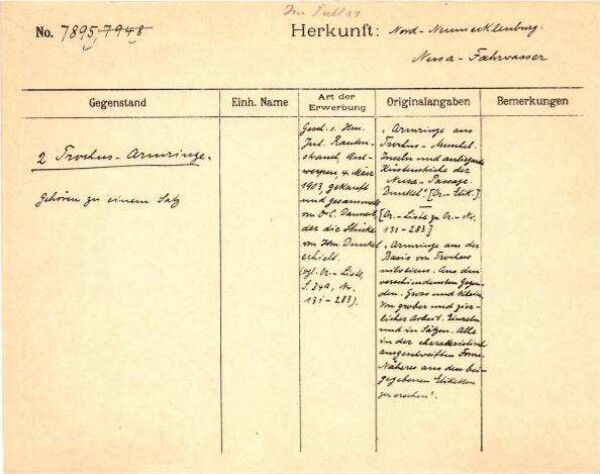 Im Pult 54
No. 7895, 7948
Herkunft: Nord-Neumecklenburg.
Nusa-Fahrwasser
Gegenstand
Einh. Name
Art der
Erwerbung
Originalangaben
Bemerkungen
2 Trochus-Armringe.
Gehören zu einem Satz
Gesch. v. Hrn.
Jul. Rauten-
strauch, Ant-
werpen, 4. März
1903, gekauft
und gesammelt
von O. C. Dannert,
der die Stücke
von Hrn. Dunkel
erhielt.
(vgl. Or.-Liste,
S. 34a, Nr.
131-283).
"Armringe aus
Trochus-Muschel.
Inseln und anliegende
Küstenstriche der
Nusa-Passage.
Dunkel". [Or.-Etik.]
[Or.-Liste zu Or.-Nr.
131-283]
"Armringe aus der
Basis von Trochus
niloticus. Aus den
verschiedensten Gegen-
den. Gross und klein,
von grober und zier-
licher Arbeit. Einzeln
und in Sätzen. Alle
in der charakteristisch
ausgeschweiften Form.
Näheres aus den bei-
gegebenen Etiketten
zu ersehen".